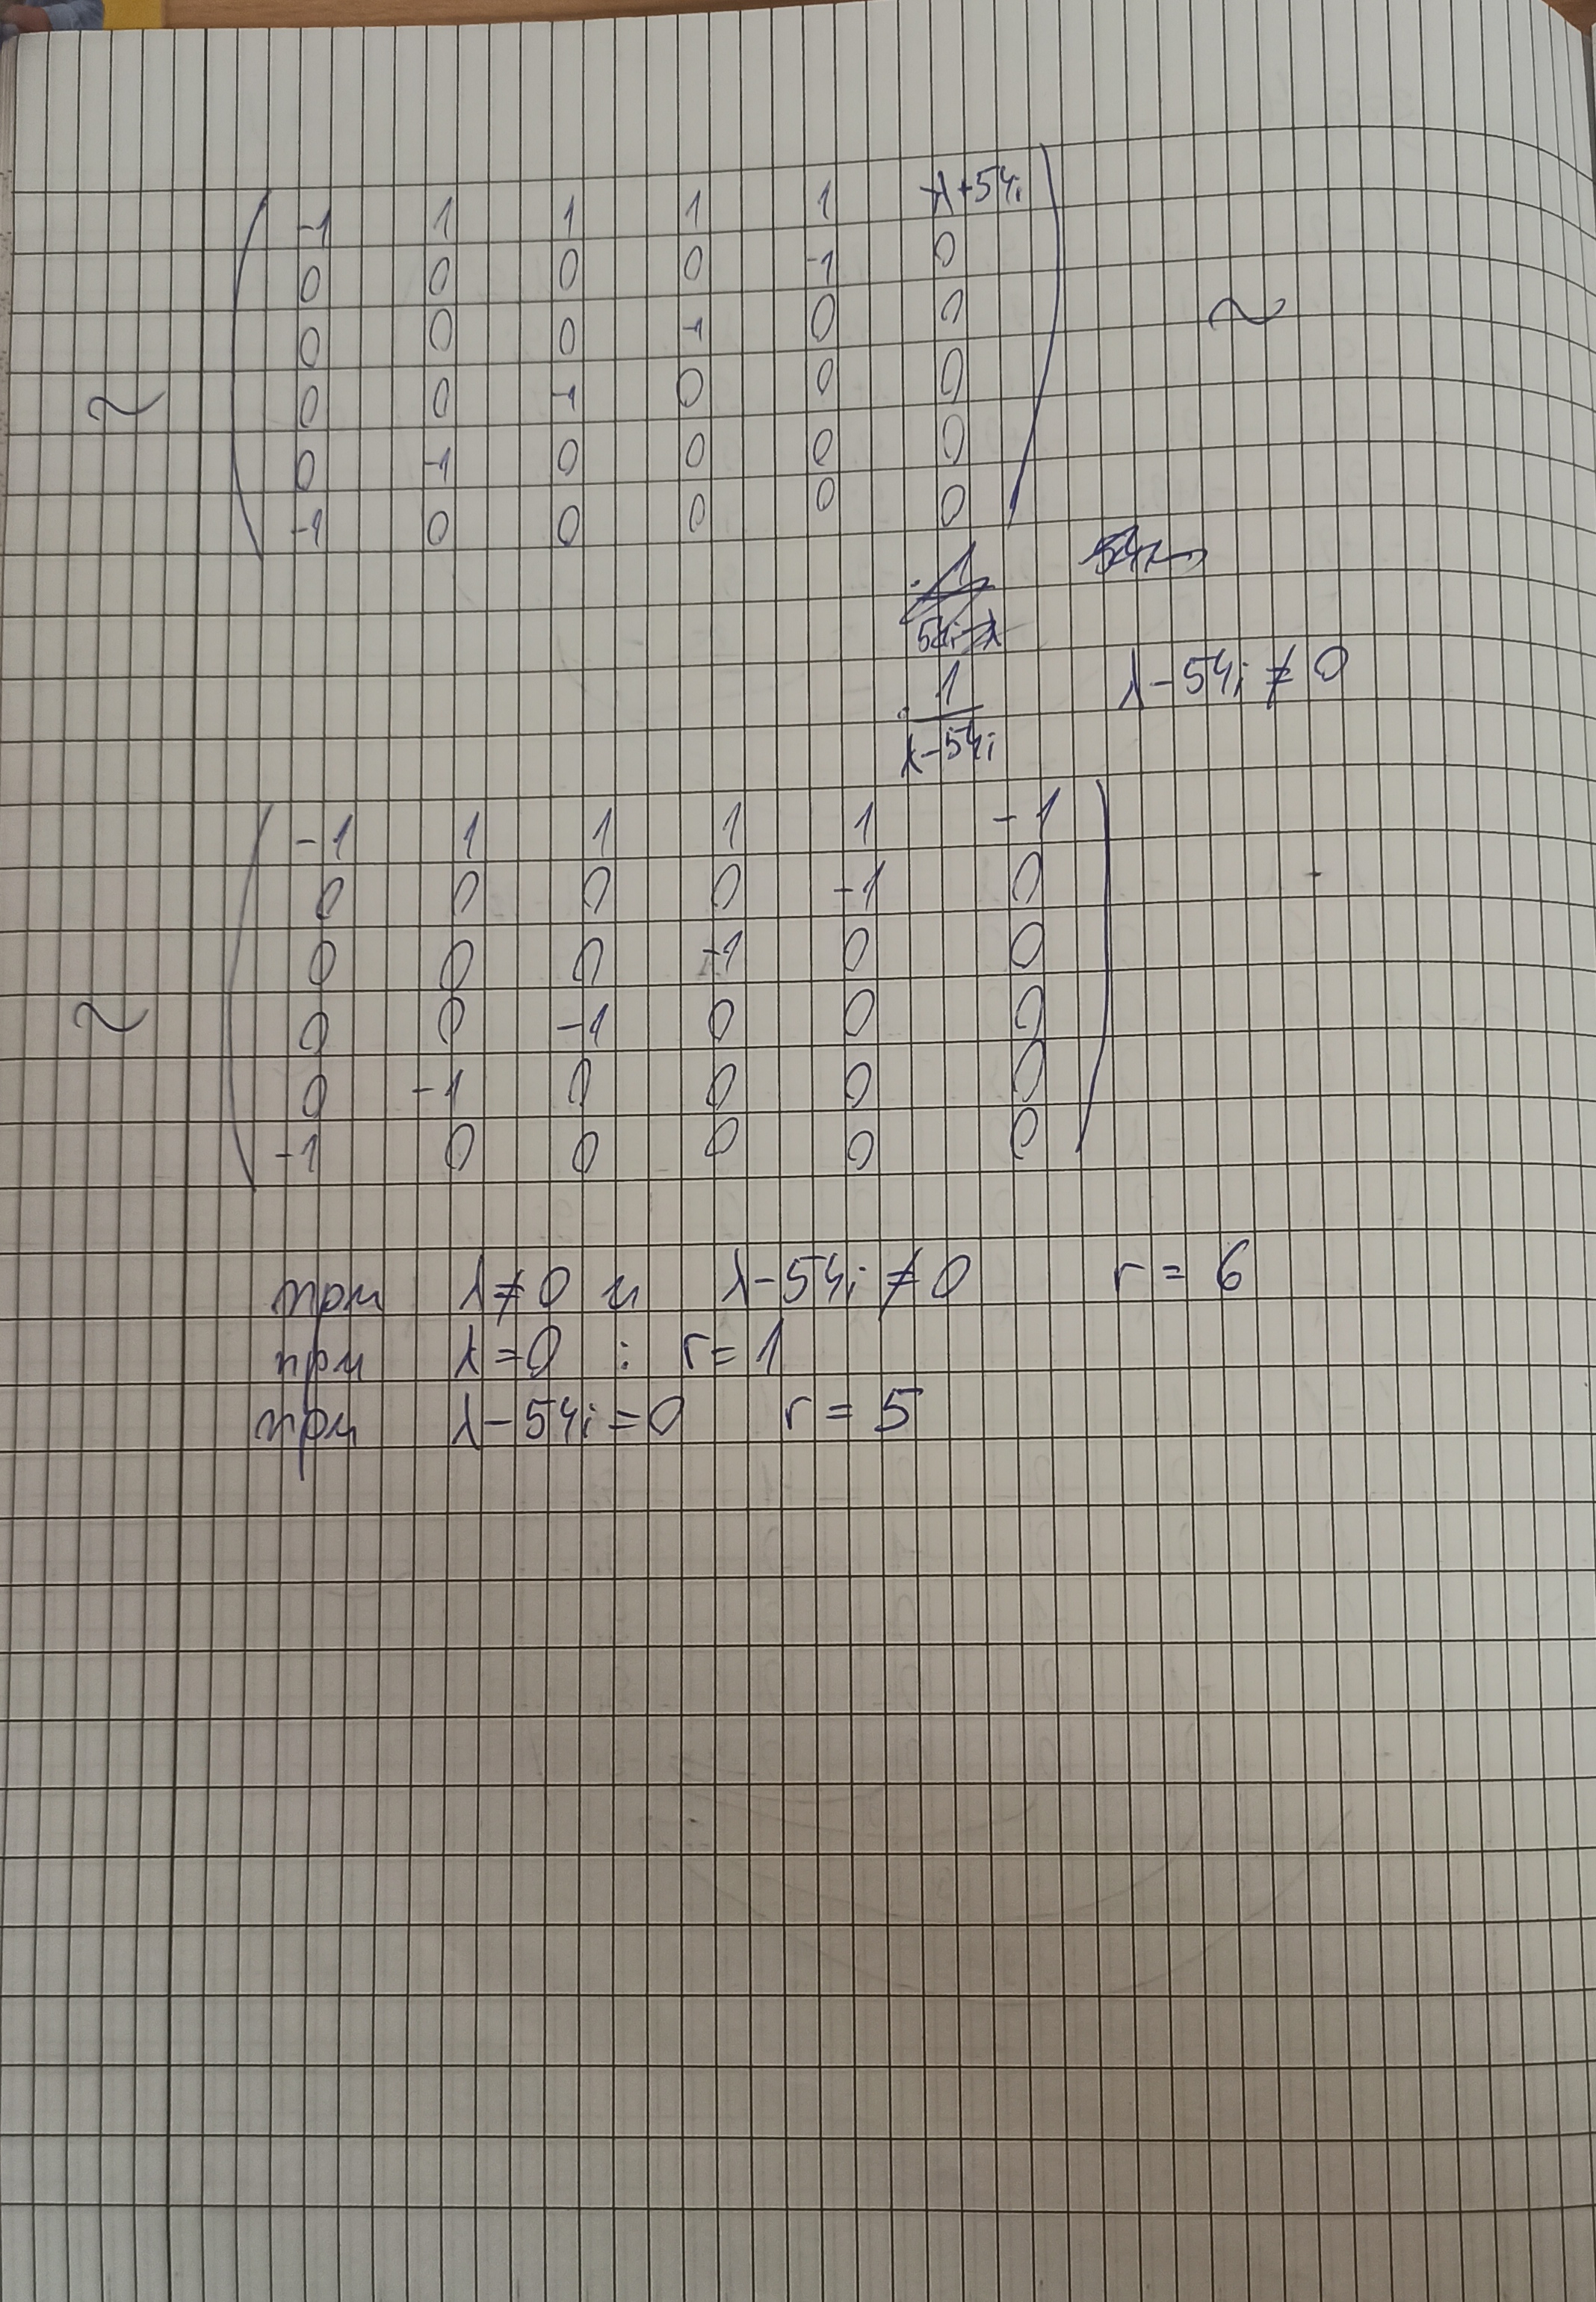 -1 1 1 1 1 -λ+54i
0 0 0 0 -1 0
0 0 0 -1 0 0
~ 0 0 -1 0 0 0 ~
0 -1 0 0 0 0
-1 0 0 0 0 0
· 1/(λ-54i) λ-54i≠0
-1 1 1 1 1 -1
0 0 0 0 -1 0
0 0 0 -1 0 0
~ 0 0 -1 0 0 0
0 -1 0 0 0 0
-1 0 0 0 0 0
при λ≠0 и λ-54i≠0 r=6
при λ=0 : r=1
при λ-54i=0 r=5